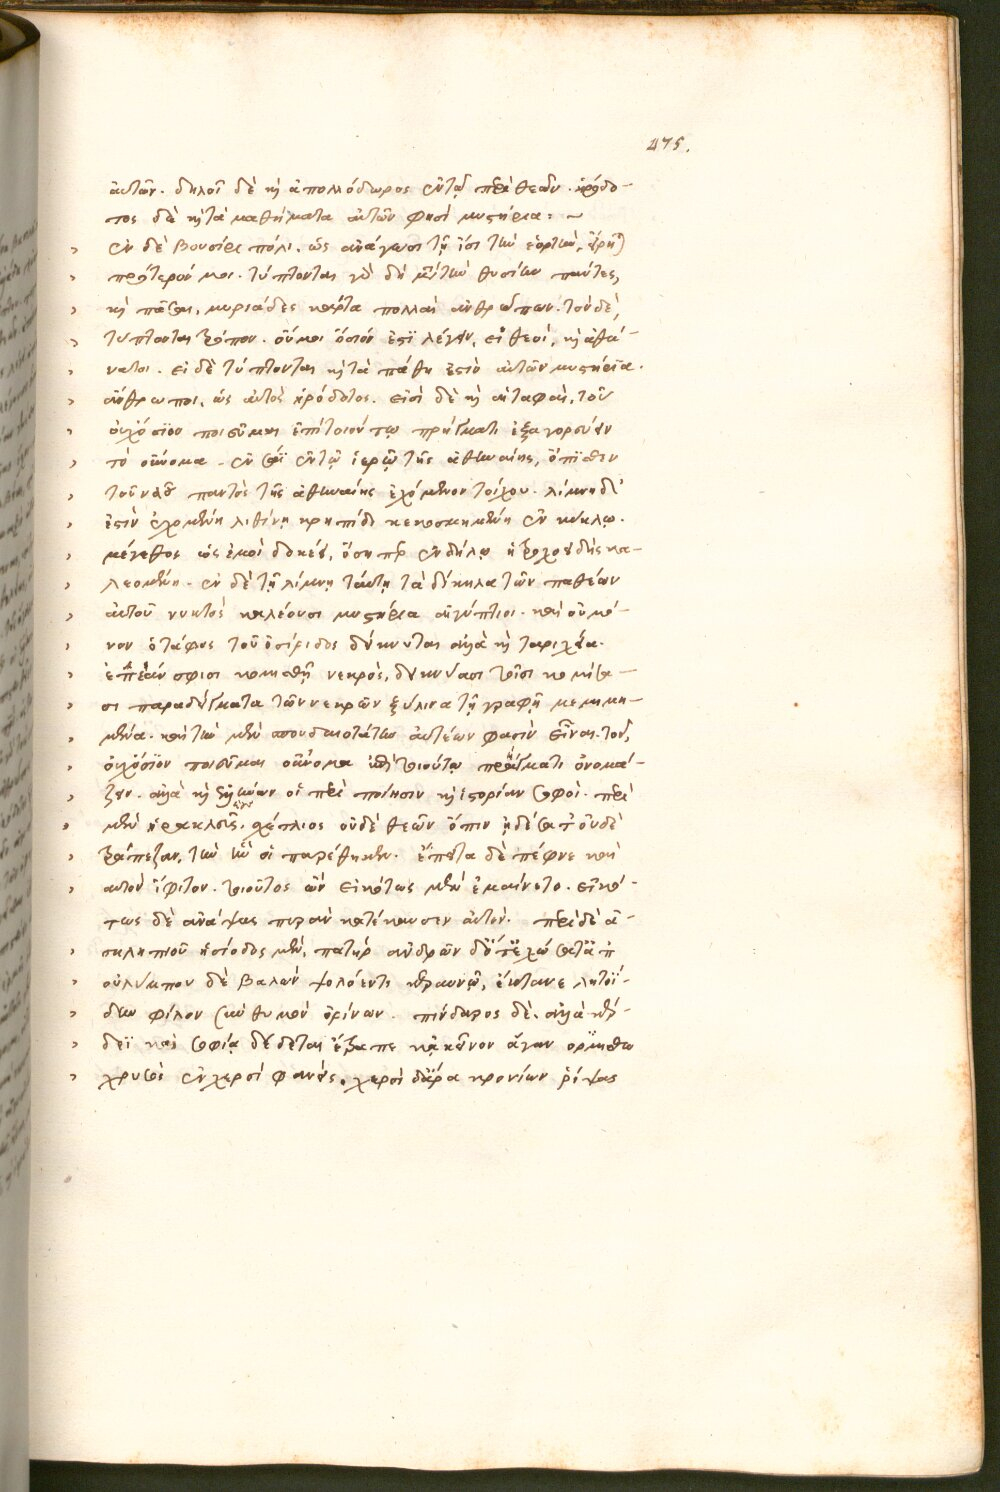 475.
αὐτῶν. δηλοῖ δὲ καὶ ἀπολλόδωρος ἐν τῷ περὶ θεῶν. ἡρόδο-
τος δὲ καὶ τὰ παθήματα αὐτῶν φησὶ μυστήρια: ~
ἐν δὲ βουσίρι πόλι. ὡς ἀνάγουσι τῇ ἴσι τὴν ἑορτὴν, εἴρηται
πρότερόν μοι. τύπτονται γὰρ δὴ μετὰ τὴν θυσίην πάντες,
καὶ πᾶσαι, μυριάδες κάρτα πολλαὶ ἀνθρώπων. τὸν δὲ,
τύπτονται τρόπον. οὔ μοι ὅσιόν ἐστι λέγειν, εἰ θεοὶ, καὶ ἀθά-
νατοι. εἰ δὲ τύπτονται καὶ τὰ πάθη ἐστὶν αὐτῶν μυστήρια.
ἄνθρωποι, ὡς αὐτὸς ἡρόδοτος. εἰσὶ δὲ καὶ αἱ ταφαὶ, τοῦ
οὐχ ὅσιον ποιεῦμαι ἐπὶ τοιούτῳ πρήγματι ἐξαγορεύειν
τὸ οὔνομα. ἐν σάϊ ἐν τῷ ἱερῷ τῆς ἀθηναίης, ὄπισθεν
τοῦ ναοῦ παντὸς τῆς ἀθηναίης ἐχόμενον τοίχου. λίμνη δ'
ἐστὶν ἐχομένη λιθίνῃ κρηπῖδι κεκοσμημένη ἐν κύκλῳ.
μέγεθος ὡς ἐμοὶ δοκέει, ὅση περ ἐν δήλῳ ἡ τροχοειδὴς κα-
λεομένη. ἐν δὲ τῇ λίμνῃ ταύτῃ τὰ δείκηλα τῶν παθέων
αὐτοῦ νυκτὸς καλέουσι μυστήρια αἰγύπτιοι. καὶ οὐ μό-
νον ὁ τάφος τοῦ ὀσίριδος δείκνυται ἀλλὰ καὶ ταριχεία.
ἐπεάν σφισι κομισθῇ νεκρὸς, δεικνύασι τοῖσι κομίσα-
σι παραδείγματα τῶν νεκρῶν ξύλινα τῇ γραφῇ μεμιμη-
μένα. καὶ τὴν μὲν σπουδαιοτάτην αὐτέων φασὶν εἶναι. τοῦ,
οὐχ ὅσιον ποιεῦμαι οὔνομα ἐπὶ τοιούτῳ πράγματι ὀνομά-
ζειν. ἀλλὰ καὶ ἑλλήνων οἱ περὶ ποίησιν καὶ ἱστορίαν σοφοὶ. περὶ
μὲν ἡρακλέους. σχέτλιος οὐδὲ θεῶν ὄπιν ᾐδέσατ' οὐδὲ
τράπεζαν, τὴν ἥν οἱ παρέθηκεν. ἔπειτα δὲ πέφνε καὶ
αὐτὸν ἴφιτον. τοιοῦτος ὢν εἰκότως μὲν ἐμαίνετο. εἰκό-
τως δὲ ἀνάψας πυρὰν κατέκαυσεν αὐτόν. περὶ δὲ ἀ-
σκληπιοῦ ἡσίοδος μὲν, πατὴρ ἀνδρῶν
οὐλύμπου δὲ βαλὼν ψολόεντι κεραυνῷ, ἔκτανε λητοΐ-
δην φίλον σὺν θυμὸν ὀρίνων. πίνδαρος δὲ. ἀλλὰ κέρ-
δεϊ καὶ σοφία δέδεται ἔτραπε κἀκεῖνον ἀγάνορι μισθῷ
χρυσὸς ἐν χερσὶ φανείς. χερσὶ δ' ἄρα κρονίων ῥίψας